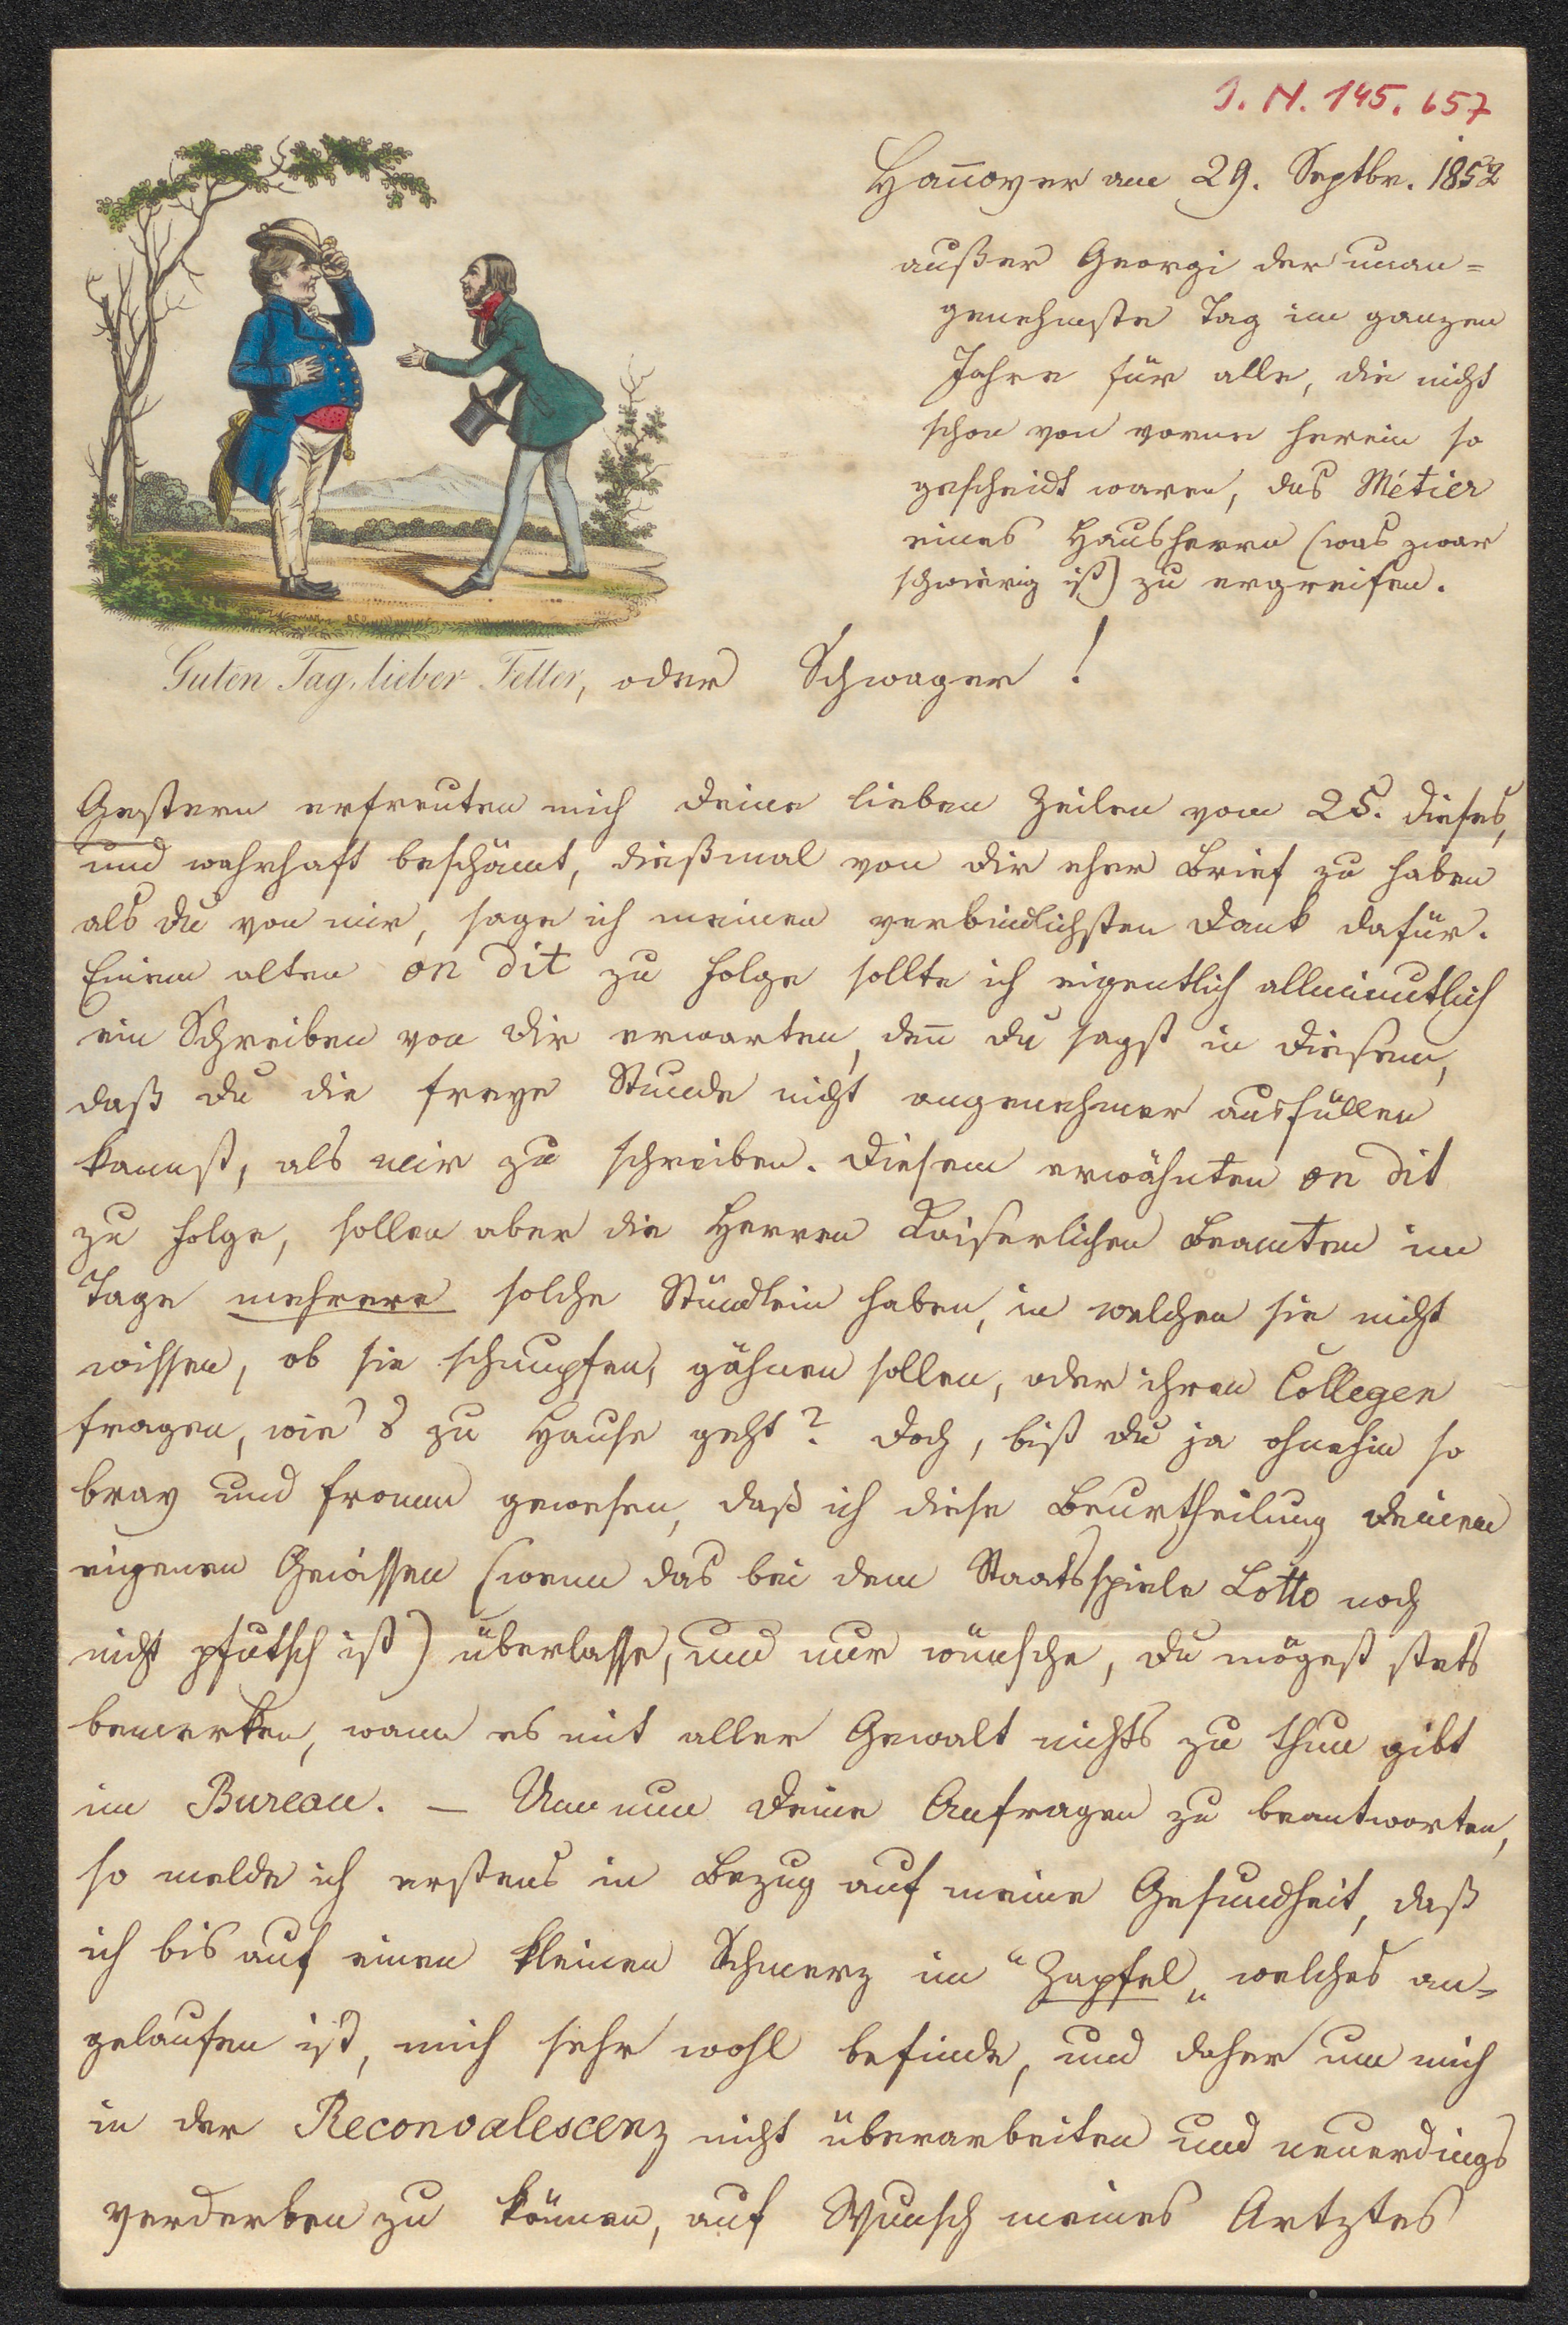 I. N. 145.657
Hannover am 29. Septbr. 1852
außer Georgi der unan=
genehmste Tag im ganzen
Jahre für alle, die nicht
schon von vorne herein so
gescheidt waren, das Métier
eines Hausherrn (was zwar
schwierig ist) zu ergreifen.
Guten Tag, lieber Vetter, oder Schwager!
Gestern erfreuten mich deine lieben Zeilen vom 25. dieses,
und wahrhaft beschämt, dießmal von dir eher Brief zu haben
als du von mir, sage ich meinen verbindlichsten Dank dafür.
Einem alten on dit zu Folge sollte ich eigentlich allminutlich
ein Schreiben von dir erwarten, deñ du sagst in diesem,
daß du die freye Stunde nicht angenehmer ausfüllen
kannst, als mir zu schreiben. Diesem erwähnten on dit
zu Folge, sollen aber die Herren Kaiserlichen Beamten im
Tage mehrere solche Stündlein haben, in welchen sie nicht
wissen, ob sie schnupfen, gähnen sollen, oder ihren Collegen
fragen, wie's zu Hause geht? Doch, bist du ja ohnehin so
brav und fromm gewesen, daß ich diese Beurtheilung deinem
eigenen Gewissen (wenn das bei dem Staatsspiele Lotto noch
nicht pfutsch ist) überlasse, und nur wünsche, du mögest stets
bemerken, wann es mit aller Gewalt nichts zu thun gibt
im Bureau. — Um nun deine Anfragen zu beantworten,
so melde ich erstens in Bezug auf meine Gesundheit, daß
ich bis auf einen kleinen Schmerz im "Zapfel" welches an=
gelaufen ist, mich sehr wohl befinde, und daher um mich
in der Reconvalescenz nicht überarbeiten und neuerdings
verderben zu können, auf Wunsch meines Artztes